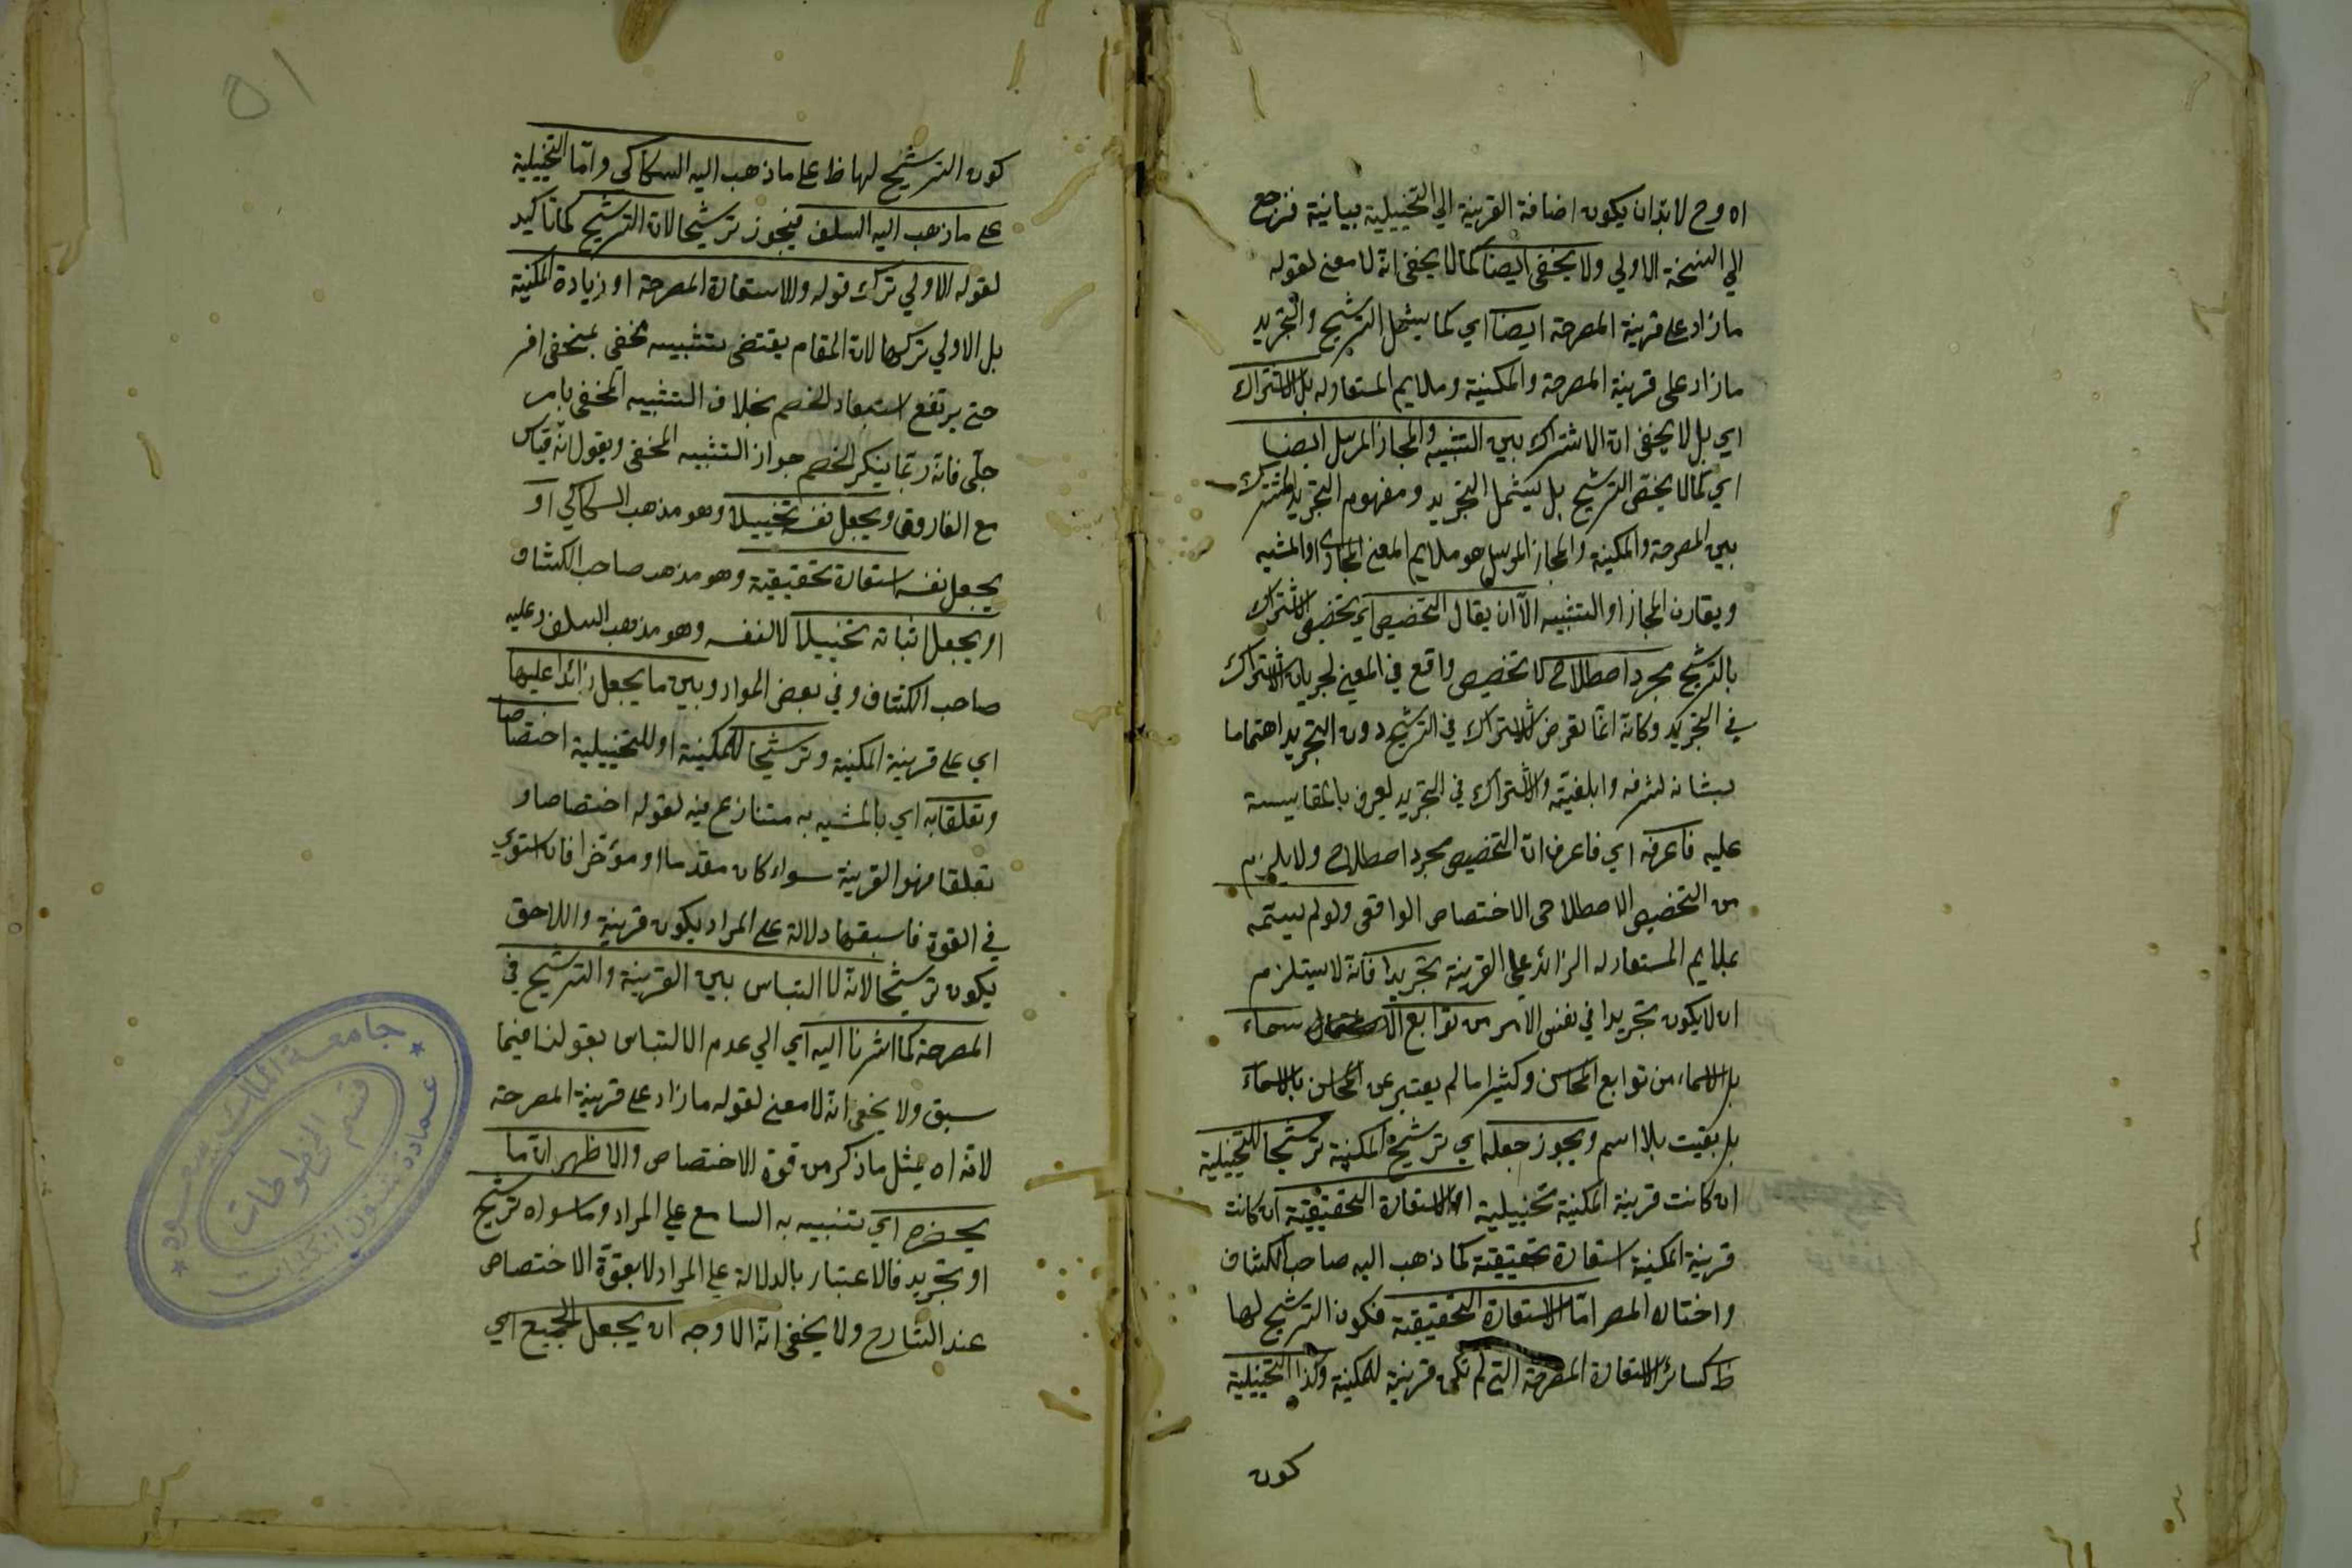 اه وح لا بد ان يكون اضافة القرينة الي التخييلية بيانية فترجع
الي النسخة الاولي ولا يخفى ايضا كما لا يخفى انه لا معنى لقوله
ما زاد على قرينة المصرحة ايضا اي كما يشمل الترشيح والتجريد
ما زاد على قرينة المصرحة والمكنية وملايم المستعار له بل الاشتراك
اي بل لا يخفى ان الاشتراك بين التشبيه والمجاز المرسل ايضا
اي كما لا يخص الترشيح بل يشمل التجريد ومفهوم التجريد المشترك
بين المصرحة والمكنية والمجاز المرسل هو ملايم المعنى المجازى او المشبه
ويقارن المجاز او التشبيه الا ان يقال التخصيص اي تخصيص الاشتراك
بالترشيح مجرد اصطلاح لا تخصيص واقع في المعنى لجريان الاشتراك
في التجريد وكانه انما تعرض للاشتراك في الترشيح دون التجريد اهتماما
بشانه لشرفه وابلغيته والاشتراك في التجريد يعرف بالمقايسة
عليه فاعرفه اي فاعرف ان التخصيص مجرد اصطلاح ولا يلزم
من التخصيص الاصطلاحى الاختصاص الواقعى ولو لم يسمه
بملايم المستعار له الزائد على القرينة تجريدا فانه لا يستلزم
ان لا يكون تجريدا في نفس الامر من توابع سماء
بل الاسماء من توابع المحاسن وكثيرا ما لم يعتبر عن المحاسن بالاسماء
بل بقيت بلا اسم ويجوز جعله اي ترشيح المكنية ترشيحا للتخييلية
ان كانت قرينة المكنية تخييلية او الاستعارة التحقيقية ان كانت
قرينة المكنية استعارة تحقيقية كما ذهب اليه صاحب الكشاف
واختاره المصر اما الاستعارة التحقيقية فكون الترشيح لها
ظ كسائر الاستعارة المصرحة التي لم تكن قرينة للمكنية وكذا التخييلية
كون
٥١
كون الترشيح لها ظ على ما ذهب اليه السكاكى واما التخييلية
على ما ذهب اليه السلف فيجوز ترشيحا لان الترشيح كما تاكيد
لقوله الاولي ترك قوله والاستعارة المصرحة او زيادة المكنية
بل الاولي تركها لان المقام يقتضى تشبيه مخفي بمخفى اخر
حتى يرتفع استبعاد الخصم بخلاف التشبيه المخفى بامر
جلي فانه ربما ينكر الخصم جواز التشبيه المخفى ويقول انه قياس
مع الفارق ويجعل نفسه تخييلا وهو مذهب السكاكي او
يجعل نفسه استعارة تحقيقية وهو مذهب صاحب الكشاف
او يجعل اثباته تخييلا لا نفسه وهو مذهب السلف وعليه
صاحب الكشاف وفي بعض المواد وبين ما يجعل زائدا عليها
اي على قرينة المكنية وترشيحا للمكنية او للتخييلية اختصاصا
وتعلقا به اي بالمشبه به متنازع فيه لقوله اختصاصا و
تعلقا فهو القرينة سواء كان مقدما او مؤخرا فان استوي
في القوة فاسبقها دلالة على المراد يكون قرينة واللاحق
يكون ترشيحا لانه لا التباس بين القرينة والترشيح في
المصرحة كما اشرنا اليه اي الي عدم الالتباس بقولنا فيما
سبق ولا يخفى انه لا معنى لقوله ما زاد على قرينة المصرحة
لانه اه يمثل ما ذكر من قوة الاختصاص والاظهر ان ما
يحضره اي تنبيه به السامع علي المراد وما سواه ترشيح
او تجريد فالاعتبار بالدلالة علي المراد لا بقوة الاختصاص
عند الشارح ولا يخفى ان الاوجه ان يجعل الجميع اي
جامعة الملك سعود
عمادة شئون المكتبات
قسم المخطوطات